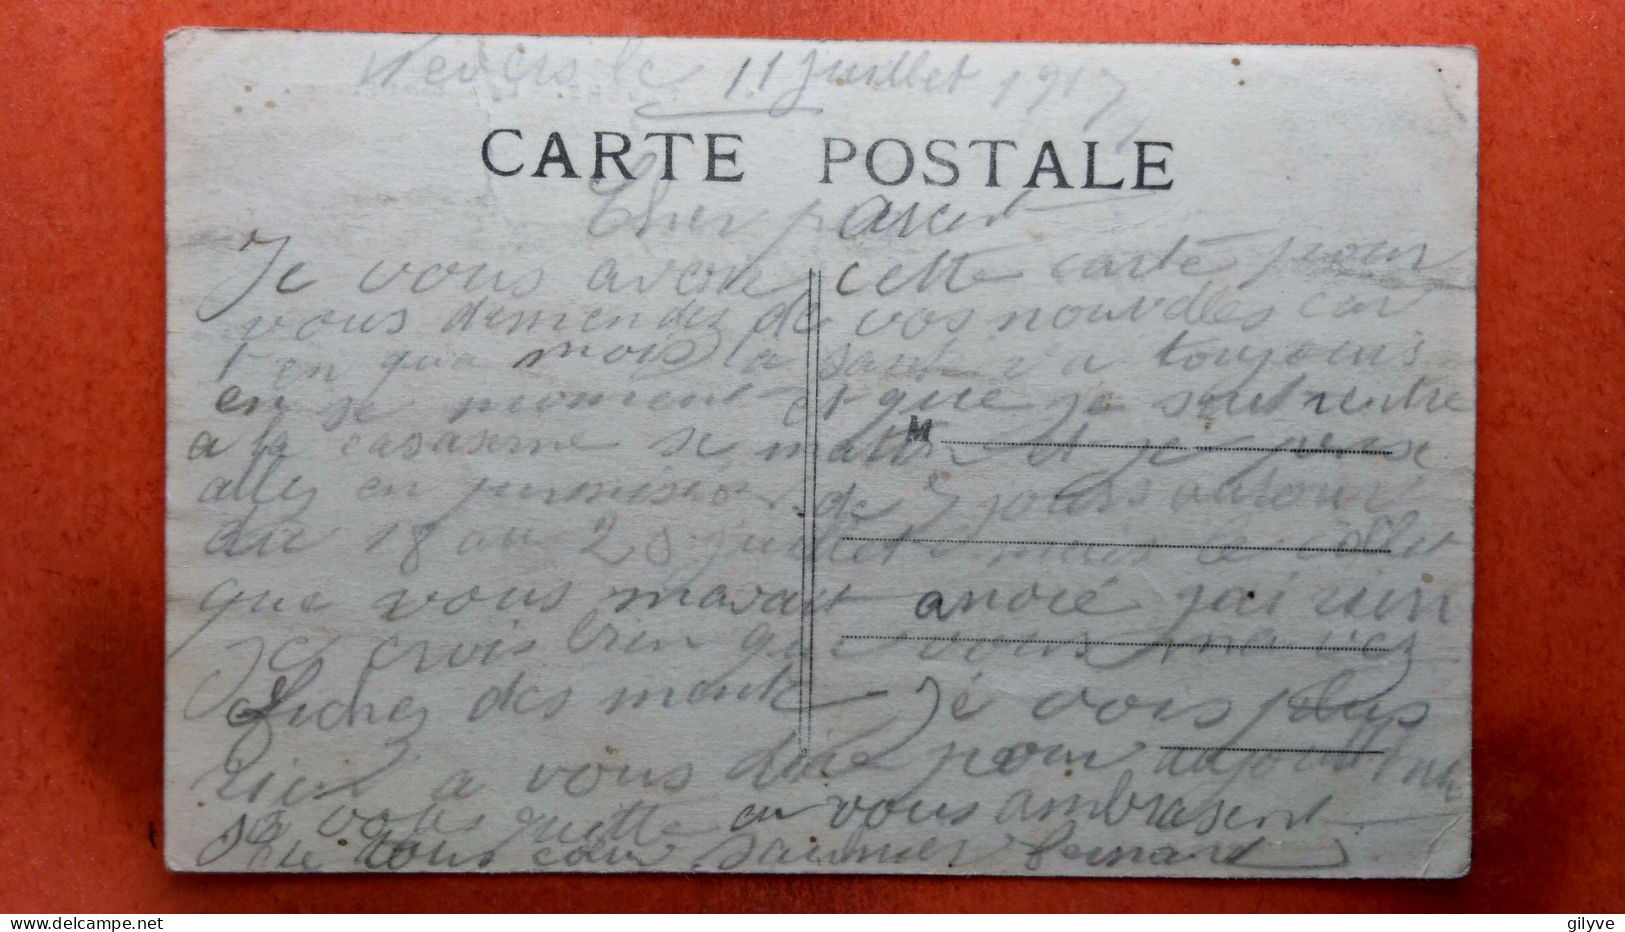 Nevers le 11 juillet 1917
CARTE POSTALE
Cher parent
Je vous avoir cette carte pour
vous demendez de vos nouvelles car
en qua mois la santé va toujours
en se moment et que je suit rentre
a la casaserne se mattin et je
allez en permision de 7 jours autour
du 18 au 25 juillet mais le collet
que vous mavait anvoié jai rien
Je crois bien que vous maviez
fichez des mente Je vois plus
rien a vous dire pour aujourdhui
Je vous quitte en vous ambrasent
de tous cœur Saunier Bernard
M
gilyve